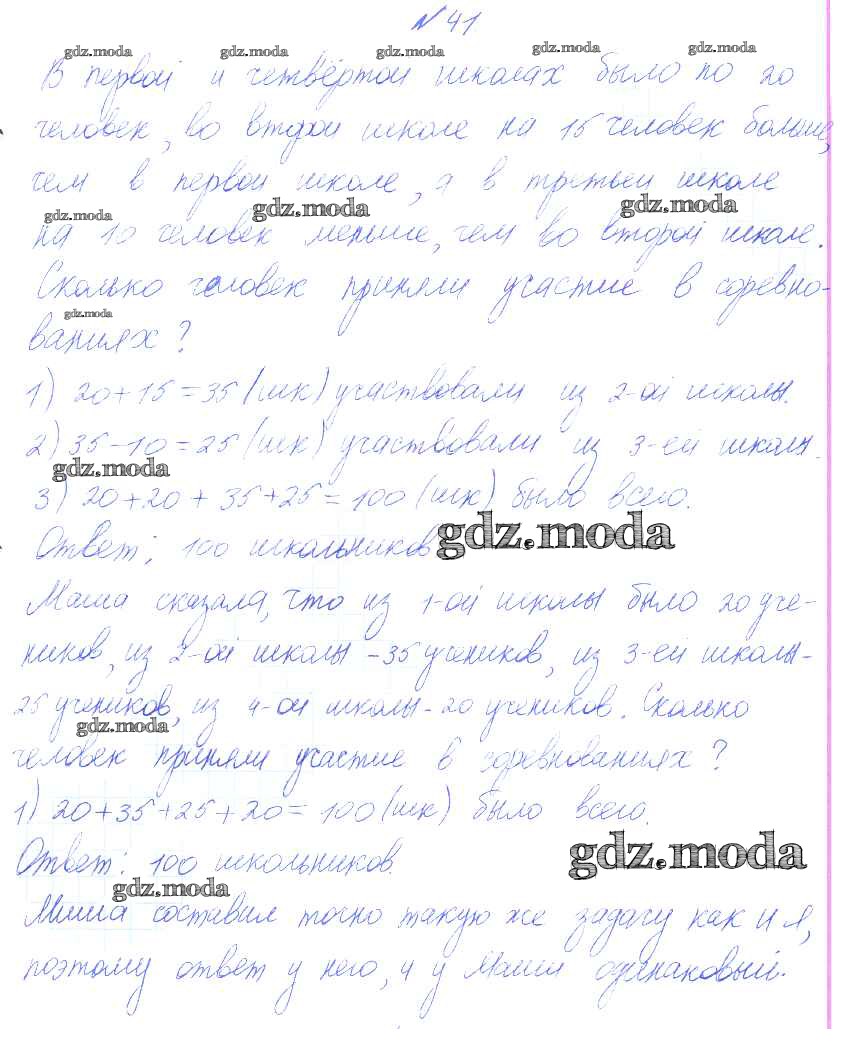 №41
gdz.moda gdz.moda gdz.moda gdz.moda gdz.moda
В первой и четвёртой школах было по 20
человек, во второй школе на 15 человек больше,
чем в первой школе, а в третьей школе
gdz.moda gdz.moda gdz.moda
на 10 человек меньше, чем во второй школе.
Сколько человек приняли участие в соревно-
gdz.moda
ваниях?
1) 20+15=35 (шк) участвовали из 2-ой школы.
2) 35-10=25 (шк) участвовали из 3-ей школы.
gdz.moda
3) 20+20+35+25=100 (шк) было всего.
Ответ: 100 школьников
gdz.moda
Маша сказала, что из 1-ой школы было 20 уче-
ников, из 2-ой школы -35 учеников, из 3-ей школы-
25 учеников, из 4-ой школы-20 учеников. Сколько
gdz.moda
человек приняли участие в соревнованиях?
1) 20+35+25+20=100 (шк) было всего.
Ответ: 100 школьников.
gdz.moda
gdz.moda
Миша составил точно такую же задачу как и я,
поэтому ответ у него, и у Маши одинаковый.